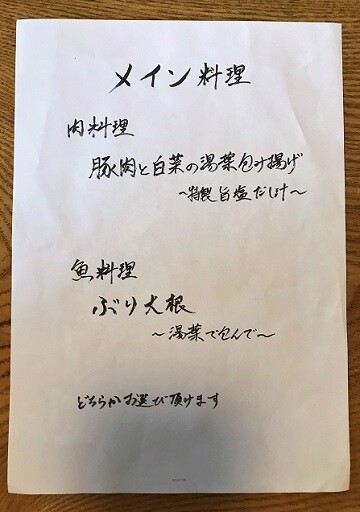 メイン料理
肉料理
豚肉と白菜の湯葉包み揚げ
〜特製旨塩だし汁〜
魚料理
ぶり大根
〜湯葉で包んで〜
どちらかお選び頂けます